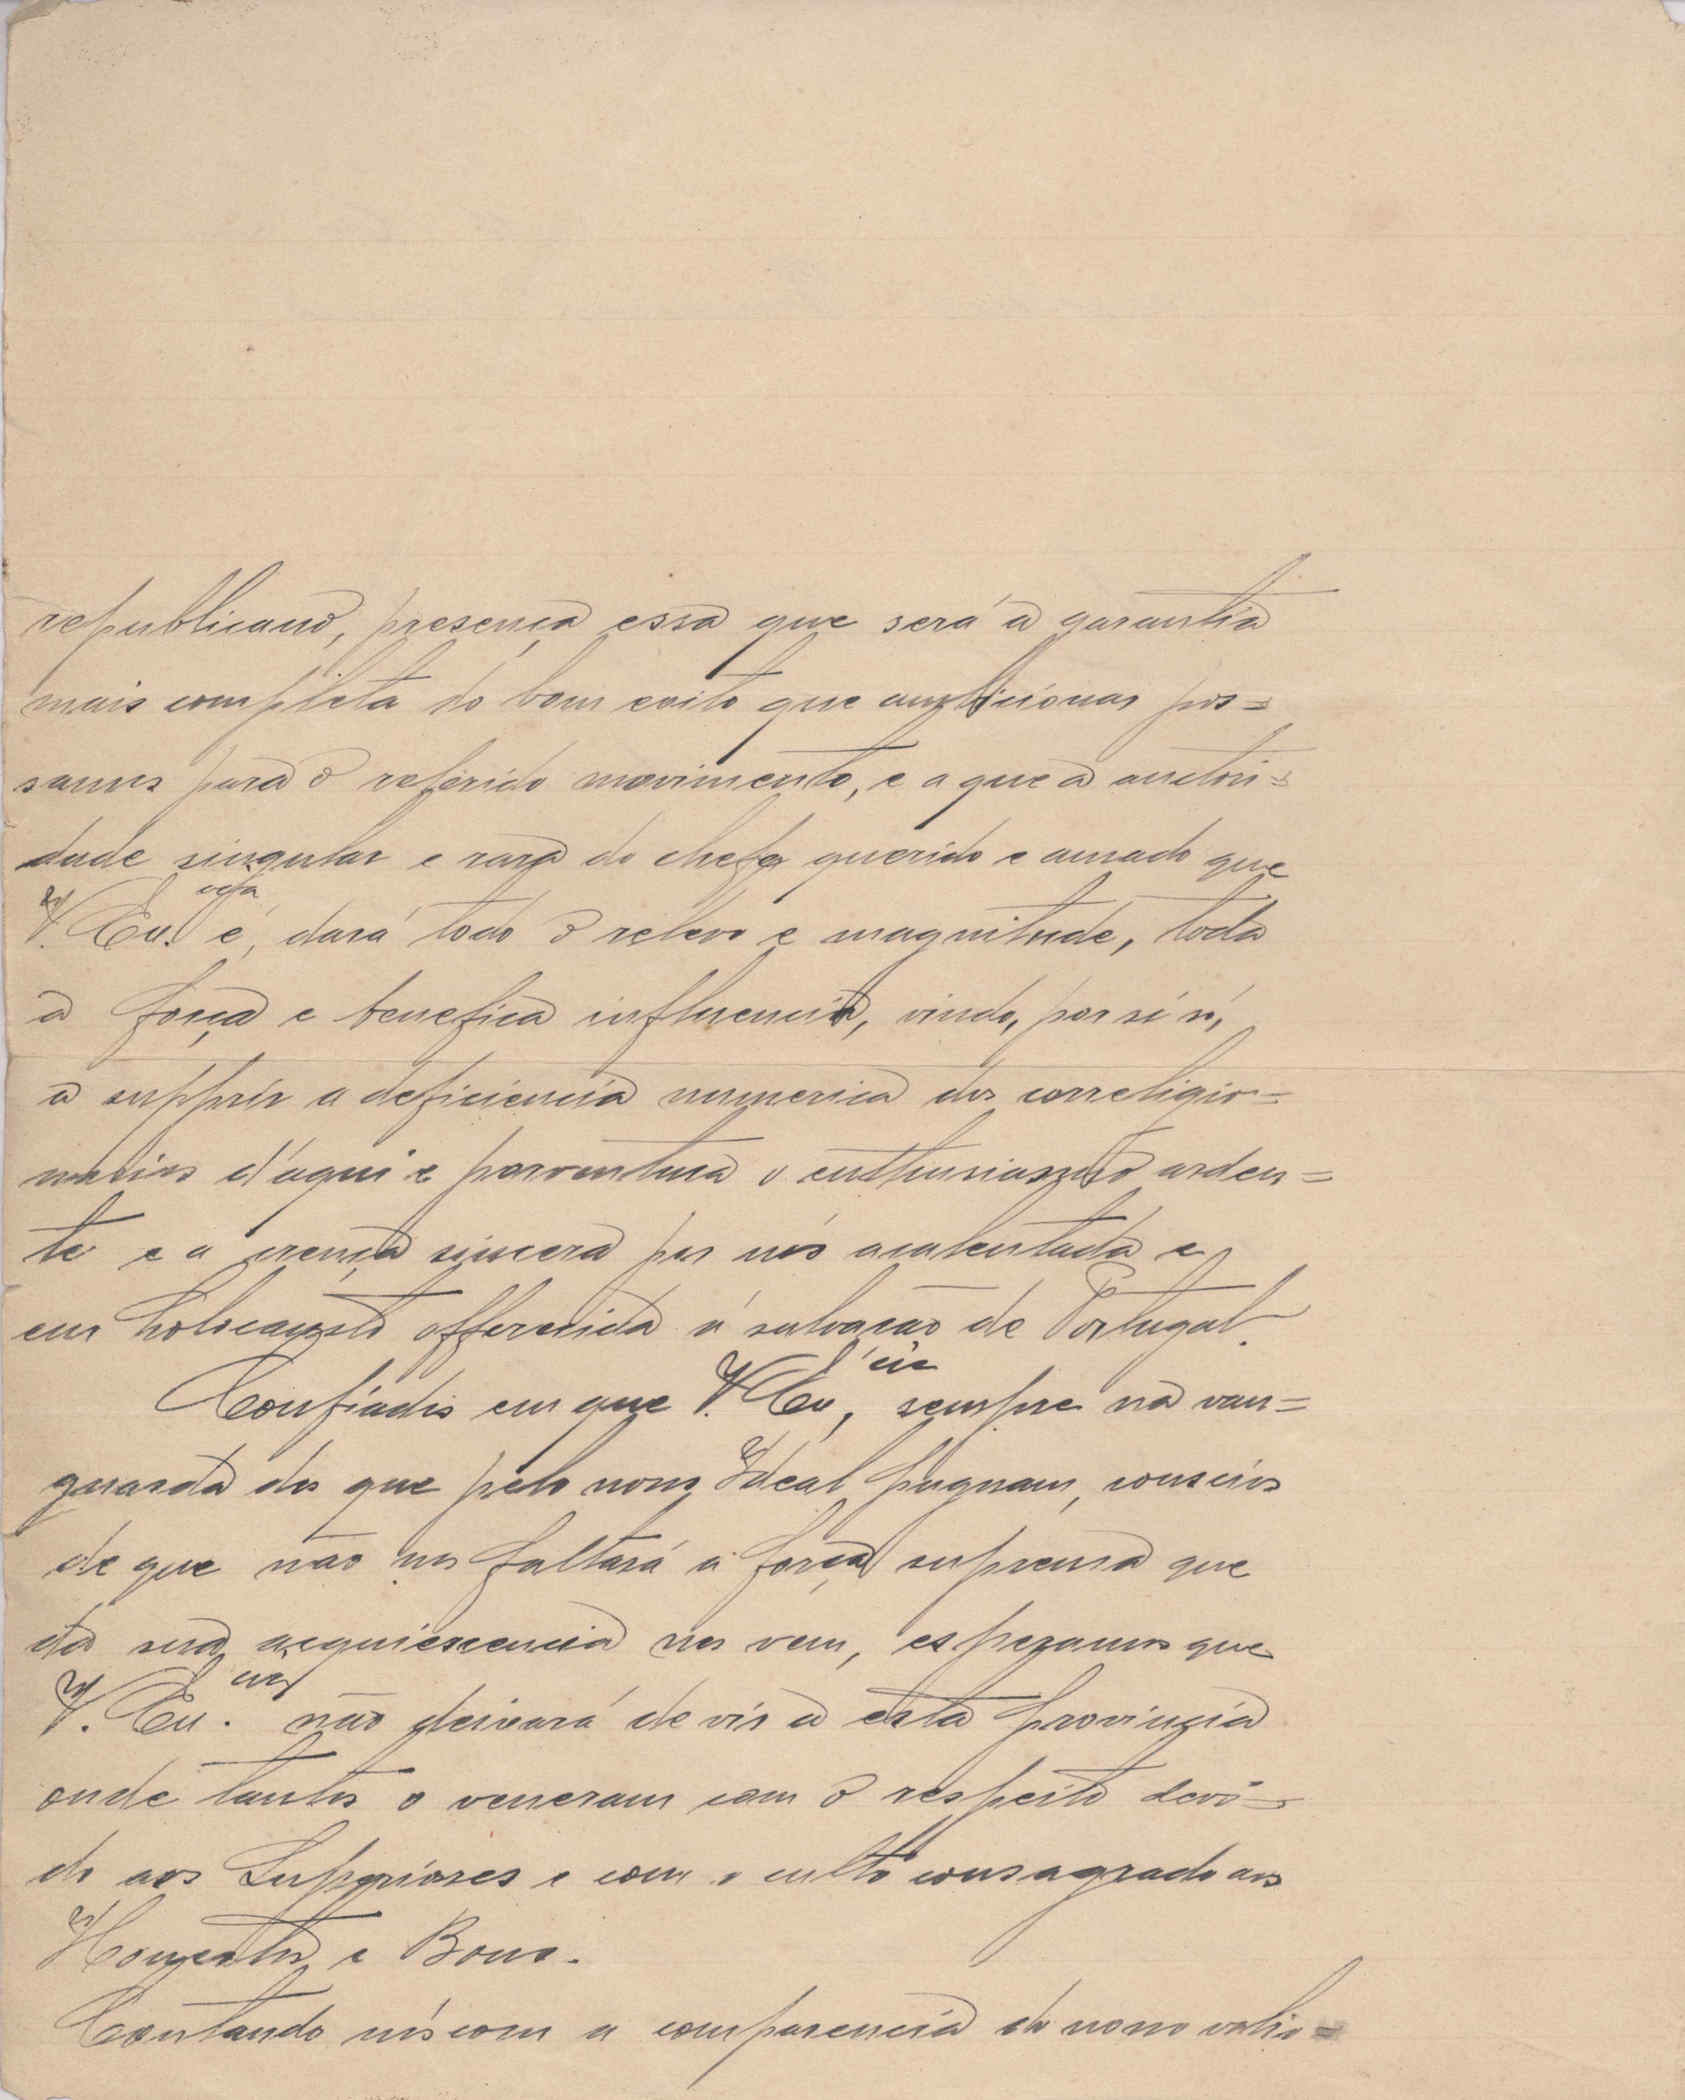 republicano, presença essa que será a garantia
mais completa do bom exito que ambicionar pos=
samos para o referido movimento, e a que a auctori=
dade singular e rara do chefe querido e amado que
V. Ex.cia é, dará todo o relevo e magnitude, toda
a força e benefica influencia, vindo, por si só,
a supprir a deficiencia numerica dos correligio=
narios d'aqui e porventura o enthusiasmo arden=
te e a crença sincera por nós acalentada e
em holocausto offerecida á salvação de Portugal.
Confiados em que V. Ex.cia, sempre na van=
guarda dos que pelo nosso Ideal pugnam, conscios
de que não nos faltará a força suprema que
da sua acquiescencia nos vem, esperamos que
V. Ex.cia não deixará de vir a esta provincia
onde tantos o veneram com o respeito devi=
do aos Superiores e com o culto consagrado aos
Honestos e Bons.
Contando nós com a comparencia do nosso valio=